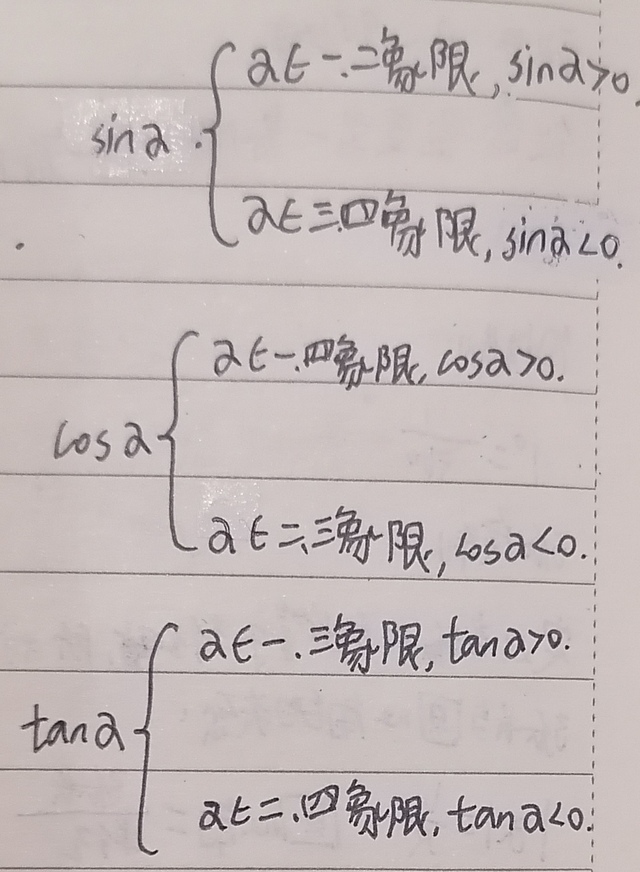 sinα
α∈一.二象限, sinα>0.
α∈三.四象限, sinα<0.
cosα
α∈一.四象限, cosα>0.
α∈二、三象限, cosα<0.
tanα
α∈一.三象限, tanα>0.
α∈二.四象限, tanα<0.